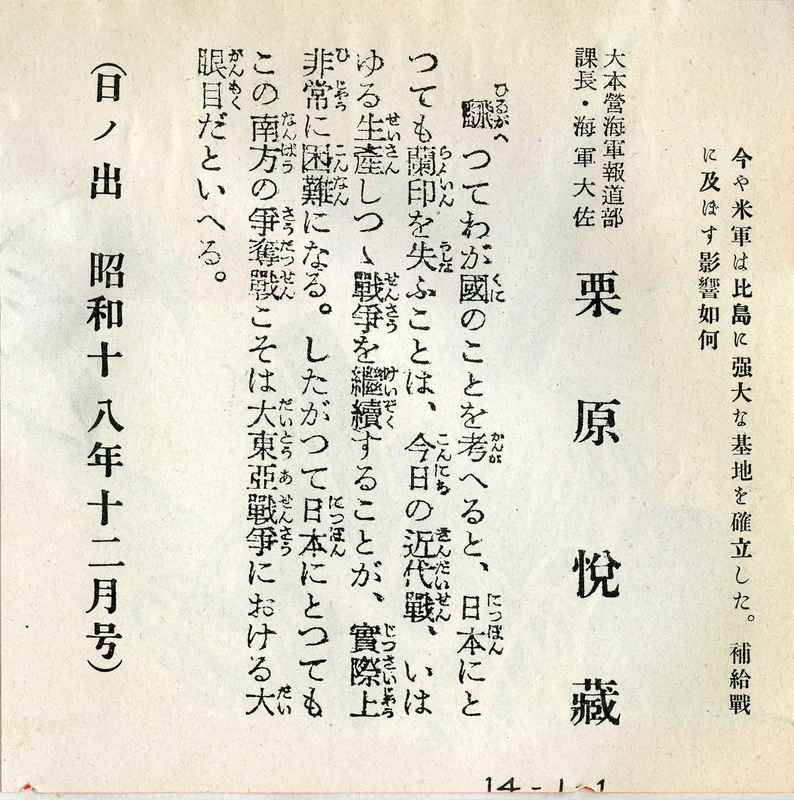 今や米軍は比島に強大な基地を確立した。補給戰
に及ぼす影響如何
大本營海軍報道部
課長・海軍大佐
栗原悅藏
飜つてわが國のことを考へると、日本にと
つても蘭印を失ふことは、今日の近代戰、いは
ゆる生產しつゝ戰爭を繼續することが、實際上
非常に困難になる。したがつて日本にとつても
この南方の爭奪戰こそは大東亞戰爭における大
眼目だといへる。
(日ノ出 昭和十八年十二月号)
14-1-1